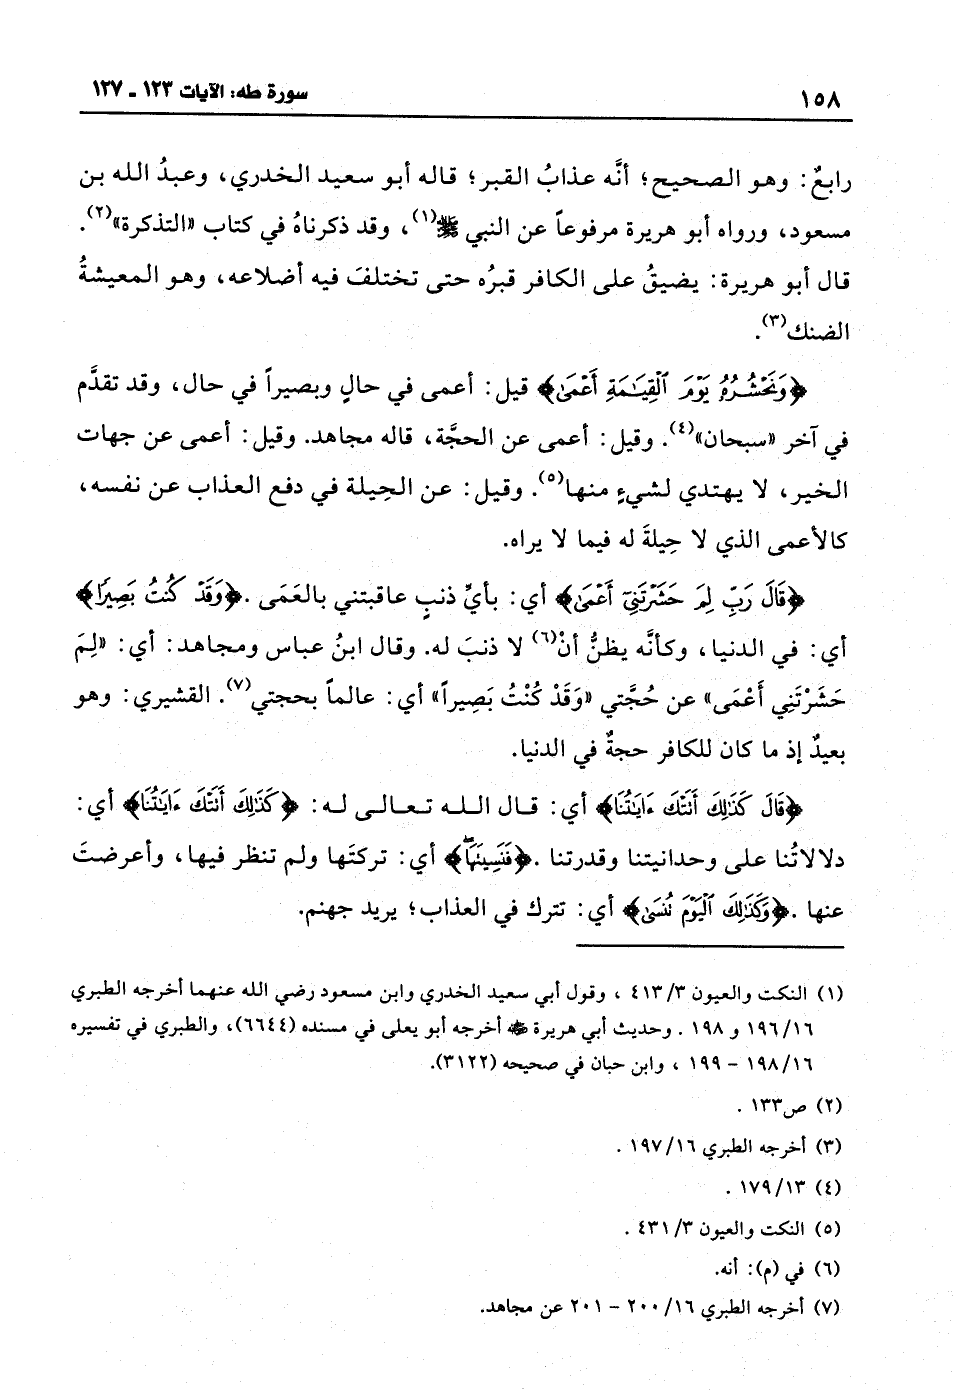 ١٥٨ سورة طه: الآيات ١٢٣ - ١٢٧
رابعٌ: وهو الصحيح؛ أنَّه عذابُ القبر؛ قاله أبو سعيد الخدري، وعبدُ الله بن
مسعود، ورواه أبو هريرة مرفوعاً عن النبي ﷺ(١)، وقد ذكرناهُ في كتاب «التذكرة»(٢).
قال أبو هريرة: يضيقُ على الكافر قبرُه حتى تختلفَ فيه أضلاعه، وهو المعيشةُ
الضنك(٣).
﴿وَنَحْشُرُهُۥ يَوْمَ ٱلْقِيَـٰمَةِ أَعْمَىٰ﴾ قيل: أعمى في حالٍ وبصيراً في حال، وقد تقدَّم
في آخر «سبحان»(٤). وقيل: أعمى عن الحجَّة، قاله مجاهد. وقيل: أعمى عن جهات
الخير، لا يهتدي لشيءٍ منها(٥). وقيل: عن الحِيلة في دفع العذاب عن نفسه،
كالأعمى الذي لا حِيلةَ له فيما لا يراه.
﴿قَالَ رَبِّ لِمَ حَشَرْتَنِىٓ أَعْمَىٰ﴾ أي: بأيِّ ذنبٍ عاقبتني بالعَمَى. ﴿وَقَدْ كُنتُ بَصِيرًا﴾
أي: في الدنيا، وكأنَّه يظنُّ أنْ(٦) لا ذنبَ له. وقال ابنُ عباس ومجاهد: أي: «لِمَ
حَشَرْتَنِي أَعْمَى» عن حُجَّتي «وَقَدْ كُنْتُ بَصِيراً» أي: عالماً بحجتي(٧). القشيري: وهو
بعيدٌ إذ ما كان للكافر حجةٌ في الدنيا.
﴿قَالَ كَذَٰلِكَ أَتَتْكَ ءَايَـٰتُنَا﴾ أي: قال الله تعالى له: ﴿كَذَٰلِكَ أَتَتْكَ ءَايَـٰتُنَا﴾ أي:
دلالاتُنا على وحدانيتنا وقدرتنا. ﴿فَنَسِيتَهَا﴾ أي: تركتَها ولم تنظر فيها، وأعرضتَ
عنها. ﴿وَكَذَٰلِكَ ٱلْيَوْمَ تُنسَىٰ﴾ أي: تترك في العذاب؛ يريد جهنم.
(١) النكت والعيون ٤١٣/٣، وقول أبي سعيد الخدري وابن مسعود رضي الله عنهما أخرجه الطبري
١٩٦/١٦ و ١٩٨. وحديث أبي هريرة ﷺ أخرجه أبو يعلى في مسنده (٦٦٤٤)، والطبري في تفسيره
١٩٨/١٦ - ١٩٩، وابن حبان في صحيحه (٣١٢٢).
(٢) ص١٣٣.
(٣) أخرجه الطبري ١٩٧/١٦.
(٤) ١٧٩/١٣.
(٥) النكت والعيون ٤٣١/٣.
(٦) في (م): أنه.
(٧) أخرجه الطبري ٢٠٠/١٦ - ٢٠١ عن مجاهد.